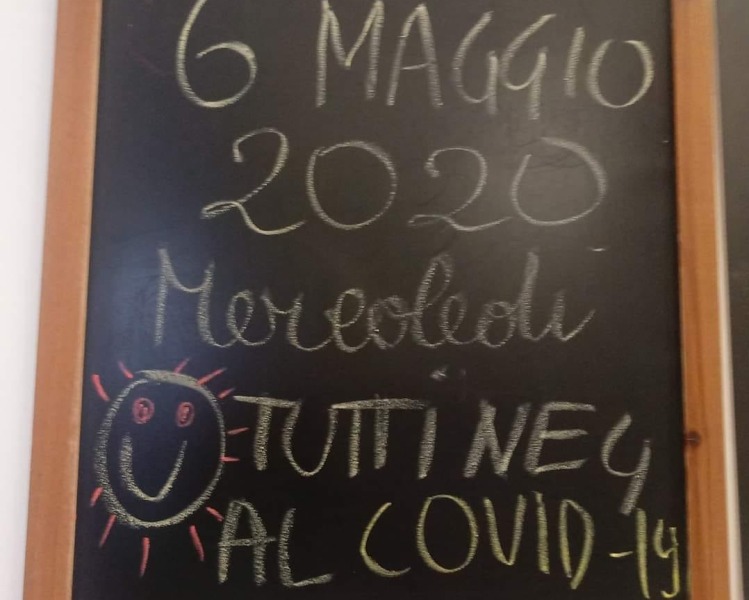 6 MAGGIO
2020
Mercoledì
TUTTI NEG
AL COVID-19